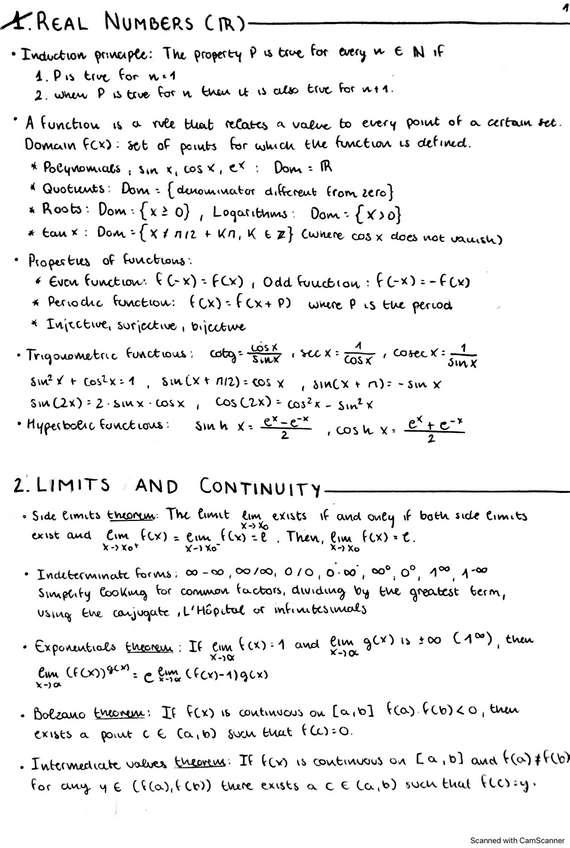 1
1. REAL NUMBERS (ℝ)
• Induction principle: The property P is true for every n ∈ ℕ if
1. P is true for n=1
2. when P is true for n then it is also true for n+1.
• A function is a rule that relates a value to every point of a certain set.
Domain f(x): set of points for which the function is defined.
* Polynomials, sin x, cos x, e^x : Dom = ℝ
* Quotients: Dom = {denominator different from zero}
* Roots: Dom = {x ≥ 0}, Logarithms: Dom = {x > 0}
* tan x: Dom = {x ≠ π/2 + Kπ, K ∈ ℤ} (where cos x does not vanish)
• Properties of functions:
* Even function: f(-x) = f(x), Odd function: f(-x) = -f(x)
* Periodic function: f(x) = f(x + P) where P is the period
* Injective, surjective, bijective
• Trigonometric functions: cotg = cos x / sin x, sec x = 1 / cos x, cosec x = 1 / sin x
sin² x + cos² x = 1, sin(x + π/2) = cos x, sin(x + π) = - sin x
sin(2x) = 2 · sin x · cos x, cos(2x) = cos² x - sin² x
• Hyperbolic functions: sinh x = (e^x - e^-x) / 2, cosh x = (e^x + e^-x) / 2
2. LIMITS AND CONTINUITY
• Side limits theorem: The limit lim x→x₀ exists if and only if both side limits
exist and lim x→x₀⁺ f(x) = lim x→x₀⁻ f(x) = ℓ. Then, lim x→x₀ f(x) = ℓ.
• Indeterminate forms: ∞-∞, ∞/∞, 0/0, 0·∞, ∞⁰, 0⁰, 1^∞, 1^-∞
Simplify looking for common factors, dividing by the greatest term,
using the conjugate, L'Hôpital or infinitesimals
• Exponentials theorem: If lim x→α f(x) = 1 and lim x→α g(x) is ±∞ (1^∞), then
lim x→α (f(x))^g(x) = e^lim x→α (f(x)-1)g(x)
• Bolzano theorem: If f(x) is continuous on [a,b] f(a)·f(b)<0, then
exists a point c ∈ (a,b) such that f(c)=0.
• Intermediate values theorem: If f(x) is continuous on [a,b] and f(a)≠f(b)
for any y ∈ (f(a),f(b)) there exists a c ∈ (a,b) such that f(c)=y.
Scanned with CamScanner